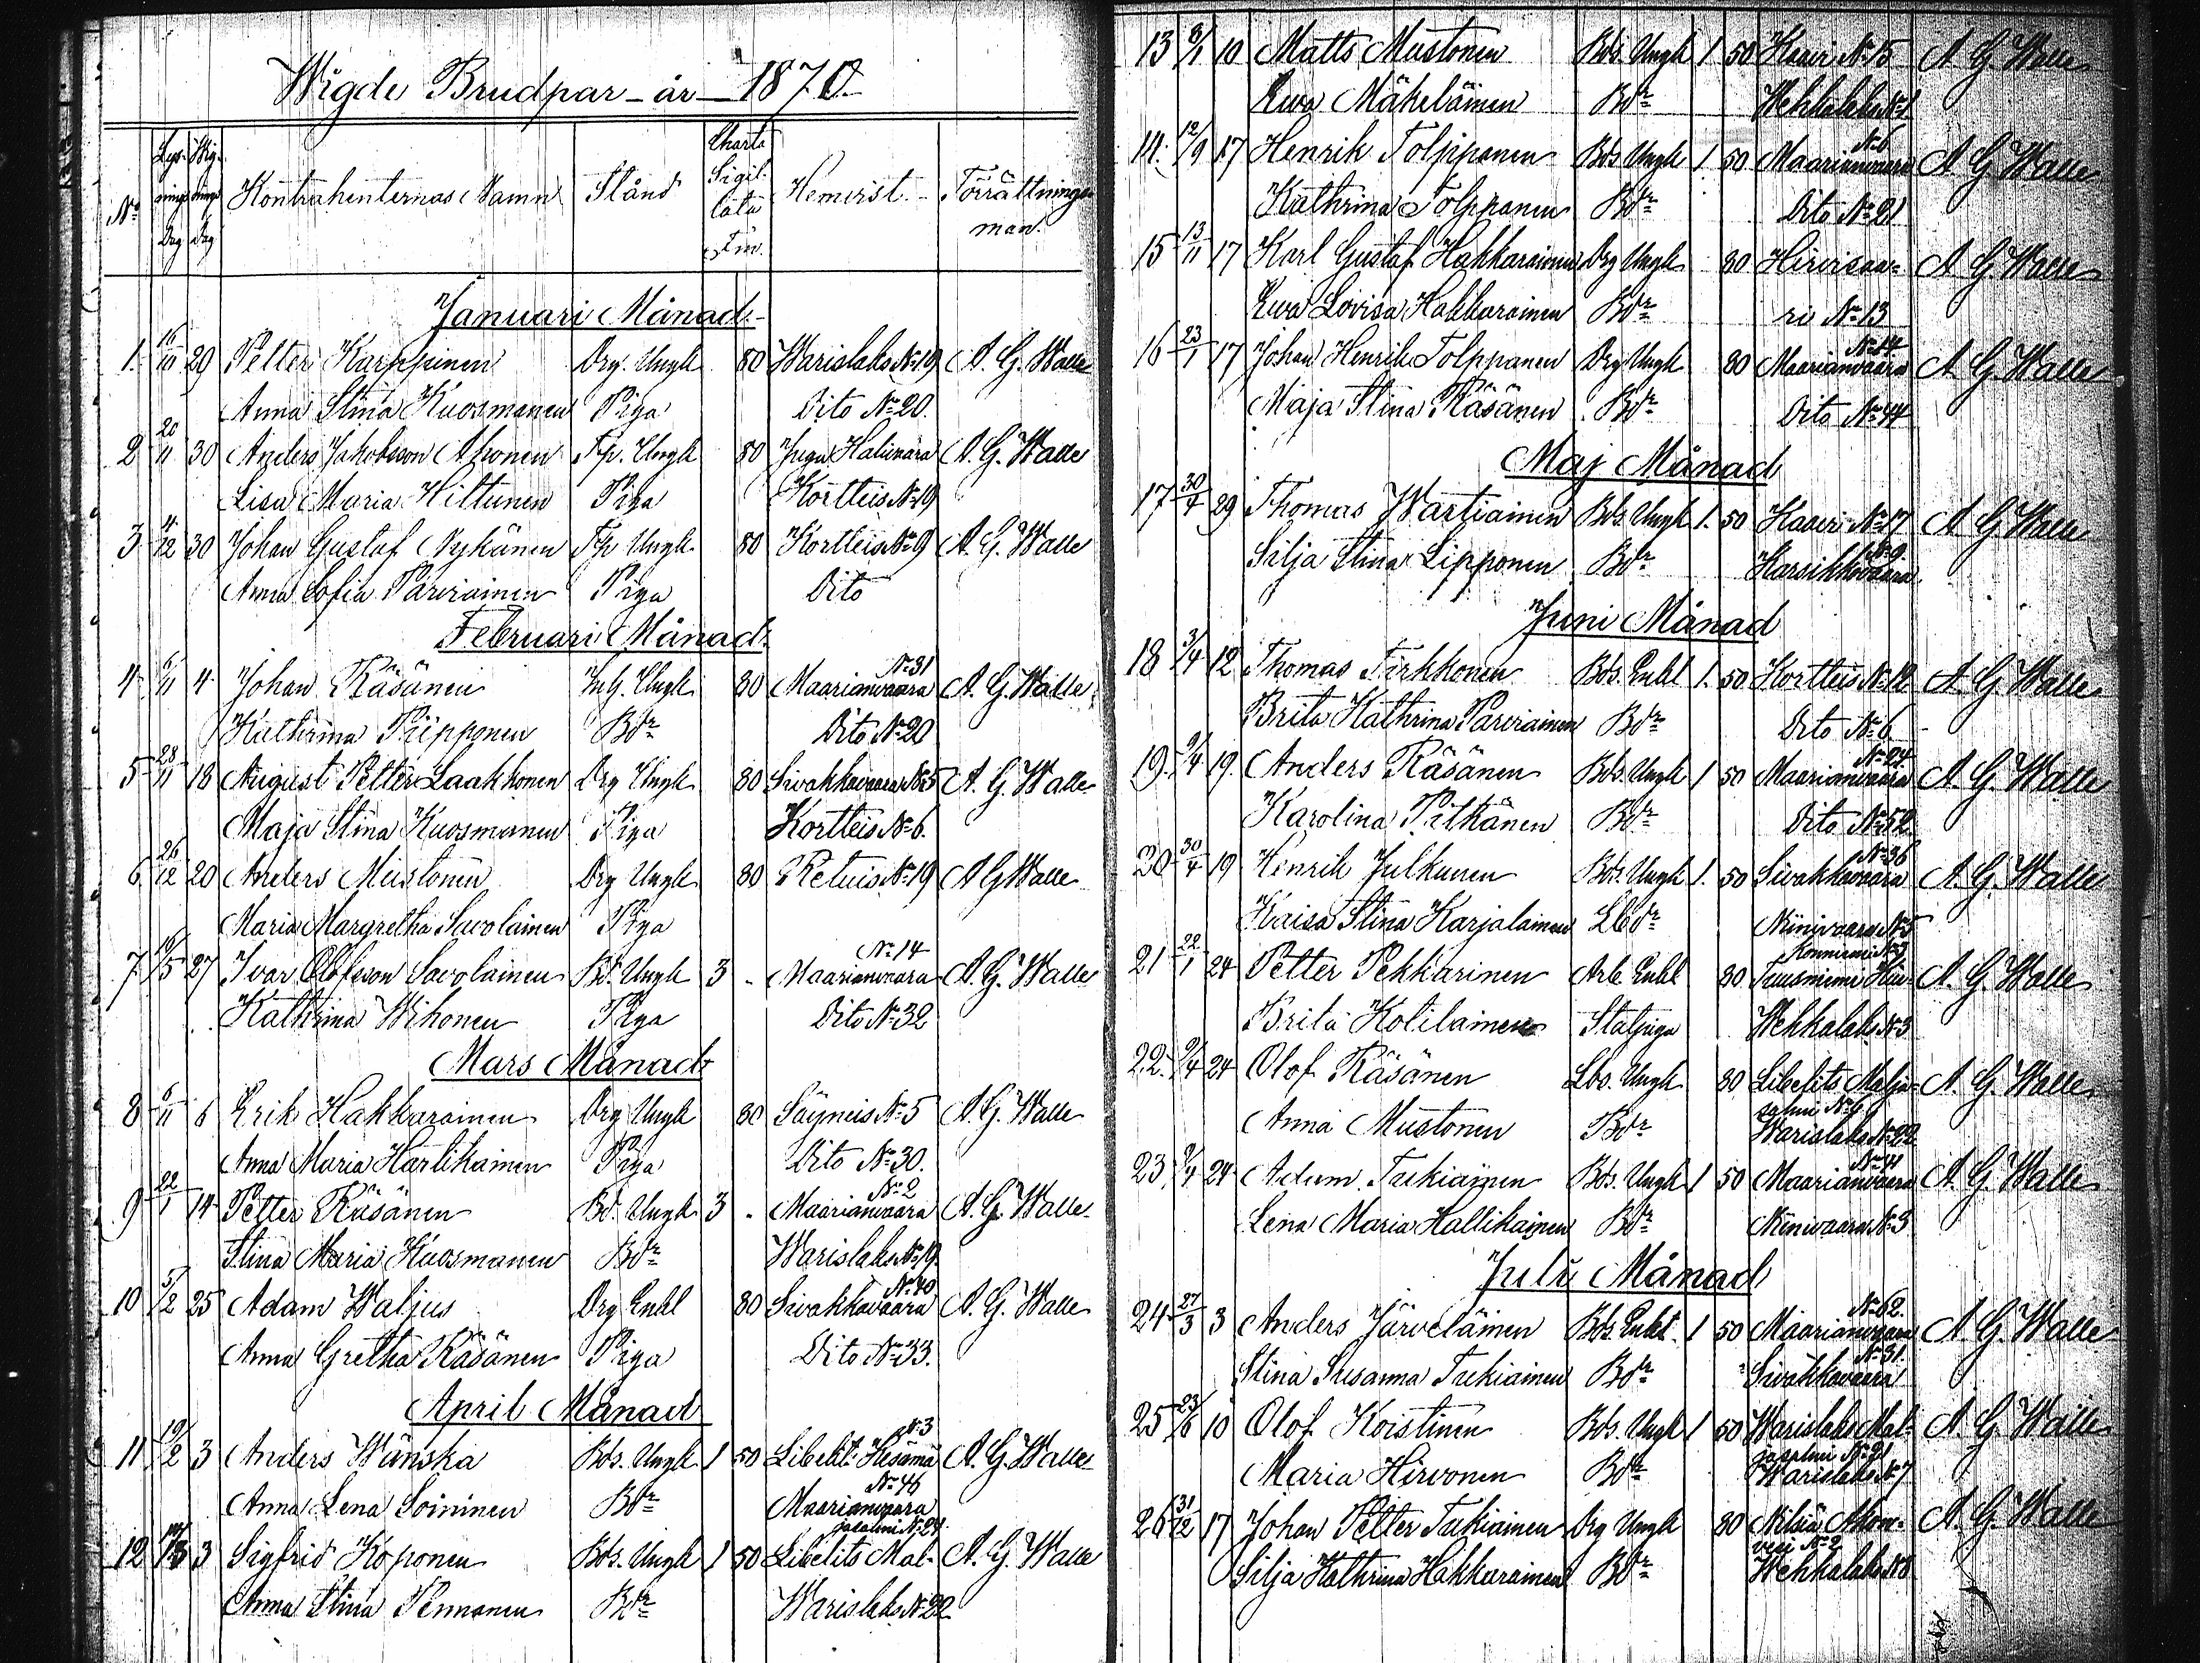 Wigde Brudpar - år - 1870
No Lysnings Dag Wignings Dag Kontrahenternas Namn Stånd Charta Sigillata Hemvist. Förrättnings man.
Januari Månad
1. 29 Petter Karppinen Drg. Ungk 80 Warislaks No 19 A. G. Walle
Anna Stina Kuosmanen Piga Dito No 20.
2 20/11 30 Anders Jakobsson Ahonen Tp. Ungk 80 Juga Halivaara A. G. Walle
Lisa Maria Hiltunen Piga Kortteis No 19
3 4/12 30 Johan Gustaf Nykänen Tp Ungk 80 Kortteis No 9 A. G. Walle
Anna Sofia Parviainen Piga Dito
Februari Månad
4 6/11 4 Johan Räsänen Ungk 80 Maarianvaara No 31 A. G. Walle
Kathrina Piipponen Bdr Dito No 20
5 28/11 18 August Petter Laakkonen Drg Ungk 80 Sivakkavaara No 5 A. G. Walle
Maja Stina Kuosmanen Piga Kortteis No 6.
6 26/12 20 Anders Mustonen Drg Ungk 80 Retuis No 19 A G Walle
Maria Margretha Savolainen Piga
7. 27 Ivar Olofsson Savolainen Bd. Ungk 3 - Maarianvaara No 14 A. G. Walle
Kathrina Wihonen Piga Dito No 32
Mars Månad
8 6/11 6 Erik Hakkarainen Drg Ungk 80 Säyneis No 5 A. G. Walle
Anna Maria Hartikainen Piga Dito No 30.
9 22/1 14 Petter Räsänen Bd. Ungk 3 - Maarianvaara No 2 A. G. Walle
Stina Maria Kuosmanen Bdr Warislaks No 19
10 5/2 25 Adam Waljus Drg Enkl 80 Sivakkavaara No 40 A. G. Walle
Anna Gretha Räsänen Piga Dito No 33.
April Månad
11 19/2 3 Anders Wänskä Bds. Ungk 1 50 Libelit: No 3 A. G. Walle
Anna Lena Soininen Bdr Maarianvaara
12 3 Sigfrid Koponen Bds. Ungk 1 50 Libelits Mal- jasalmi No 24. A. G. Walle
Anna Stina Pennanen Bdr Warislaks No 22
13 8/1 10 Matts Mustonen Bds. Ungk 1 50 Kaavi No 15 A G Walle
Ewa Mäkeläinen Bdr Wehkalaks No 1
14. 12/9 17 Henrik Tolppanen Bds Ungk 1. 50 Maarianvaara No 6 A G Walle
Kathrina Tolppanen Bdr Dito No 21
15 13/11 17 Karl Gustaf Hakkarainen Drg Ungk 80 Hirvisaa- A G Walle
Ewa Lovisa Hakkarainen Bdr ri No 13
16 23/1 17 Johan Henrik Tolppanen Drg Ungk 80 Maarianvaara No 14 A G Walle
Maja Stina Räsänen Bdr Dito No 44
Maj Månad
17 30/4 29 Thomas Wartiainen Bds. Ungk 1. 50 Kaavi No 17 A G Walle
Silja Stina Lipponen Bdr Karsikkovaara No 9.
Juni Månad
18 3/4 12 Thomas Tirkkonen Bds. Enkl 1. 50 Kortteis No 12 A G Walle
Brita Kathrina Parviainen Bdr Dito No 6
19. 9/4 19. Anders Räsänen Bds. Ungk 1 50 Maarianvaara No 24 A. G. Walle
Karolina Pitkänen Bdr Dito No 52
20 30/4 19 Henrik Julkunen Bds. Ungk 1. 50 Sivakkavaara No 36 A. G. Walle
Kaisa Stina Karjalainen Lbdr Niinivaara No 5
21 22/1 24 Petter Pekkarinen Arb. Enkl 80 Tuusniemi A. G. Walle
Brita Kotilainen Wehkalaks No 3
22. 9/4 24 Olof Räsänen Lbs. Ungk 80 Libelits Malja- A. G. Walle
salmi
Anna Mustonen Bdr Warislaks No 22
23 9/4 24 Adam Tukiainen Bds. Ungk 1 50 Maarianvaara No 41 A. G. Walle
Lena Maria Hallikainen Bdr Niinivaara No 3
Juli Månad
24 27/3 3 Anders Järveläinen Bds. Enkl. 1 50 Maarianvaara No 62. A. G. Walle
Stina Susanna Tukiainen Bdr Sivakkavaara No 31.
25 23/6 10 Olof Koistinen Bds. Ungk 1 50 Warislaks Mal- A. G. Walle
jasalmi No 21
Maria Hirvonen Bdr Warislaks No 7
26 31/12 17 Johan Petter Tukiainen Drg Ungk 80 Nilsiä Akon- A. G. Walle
vesi No 2
Silja Kathrina Hakkarainen Bdr Wehkalaks No 8